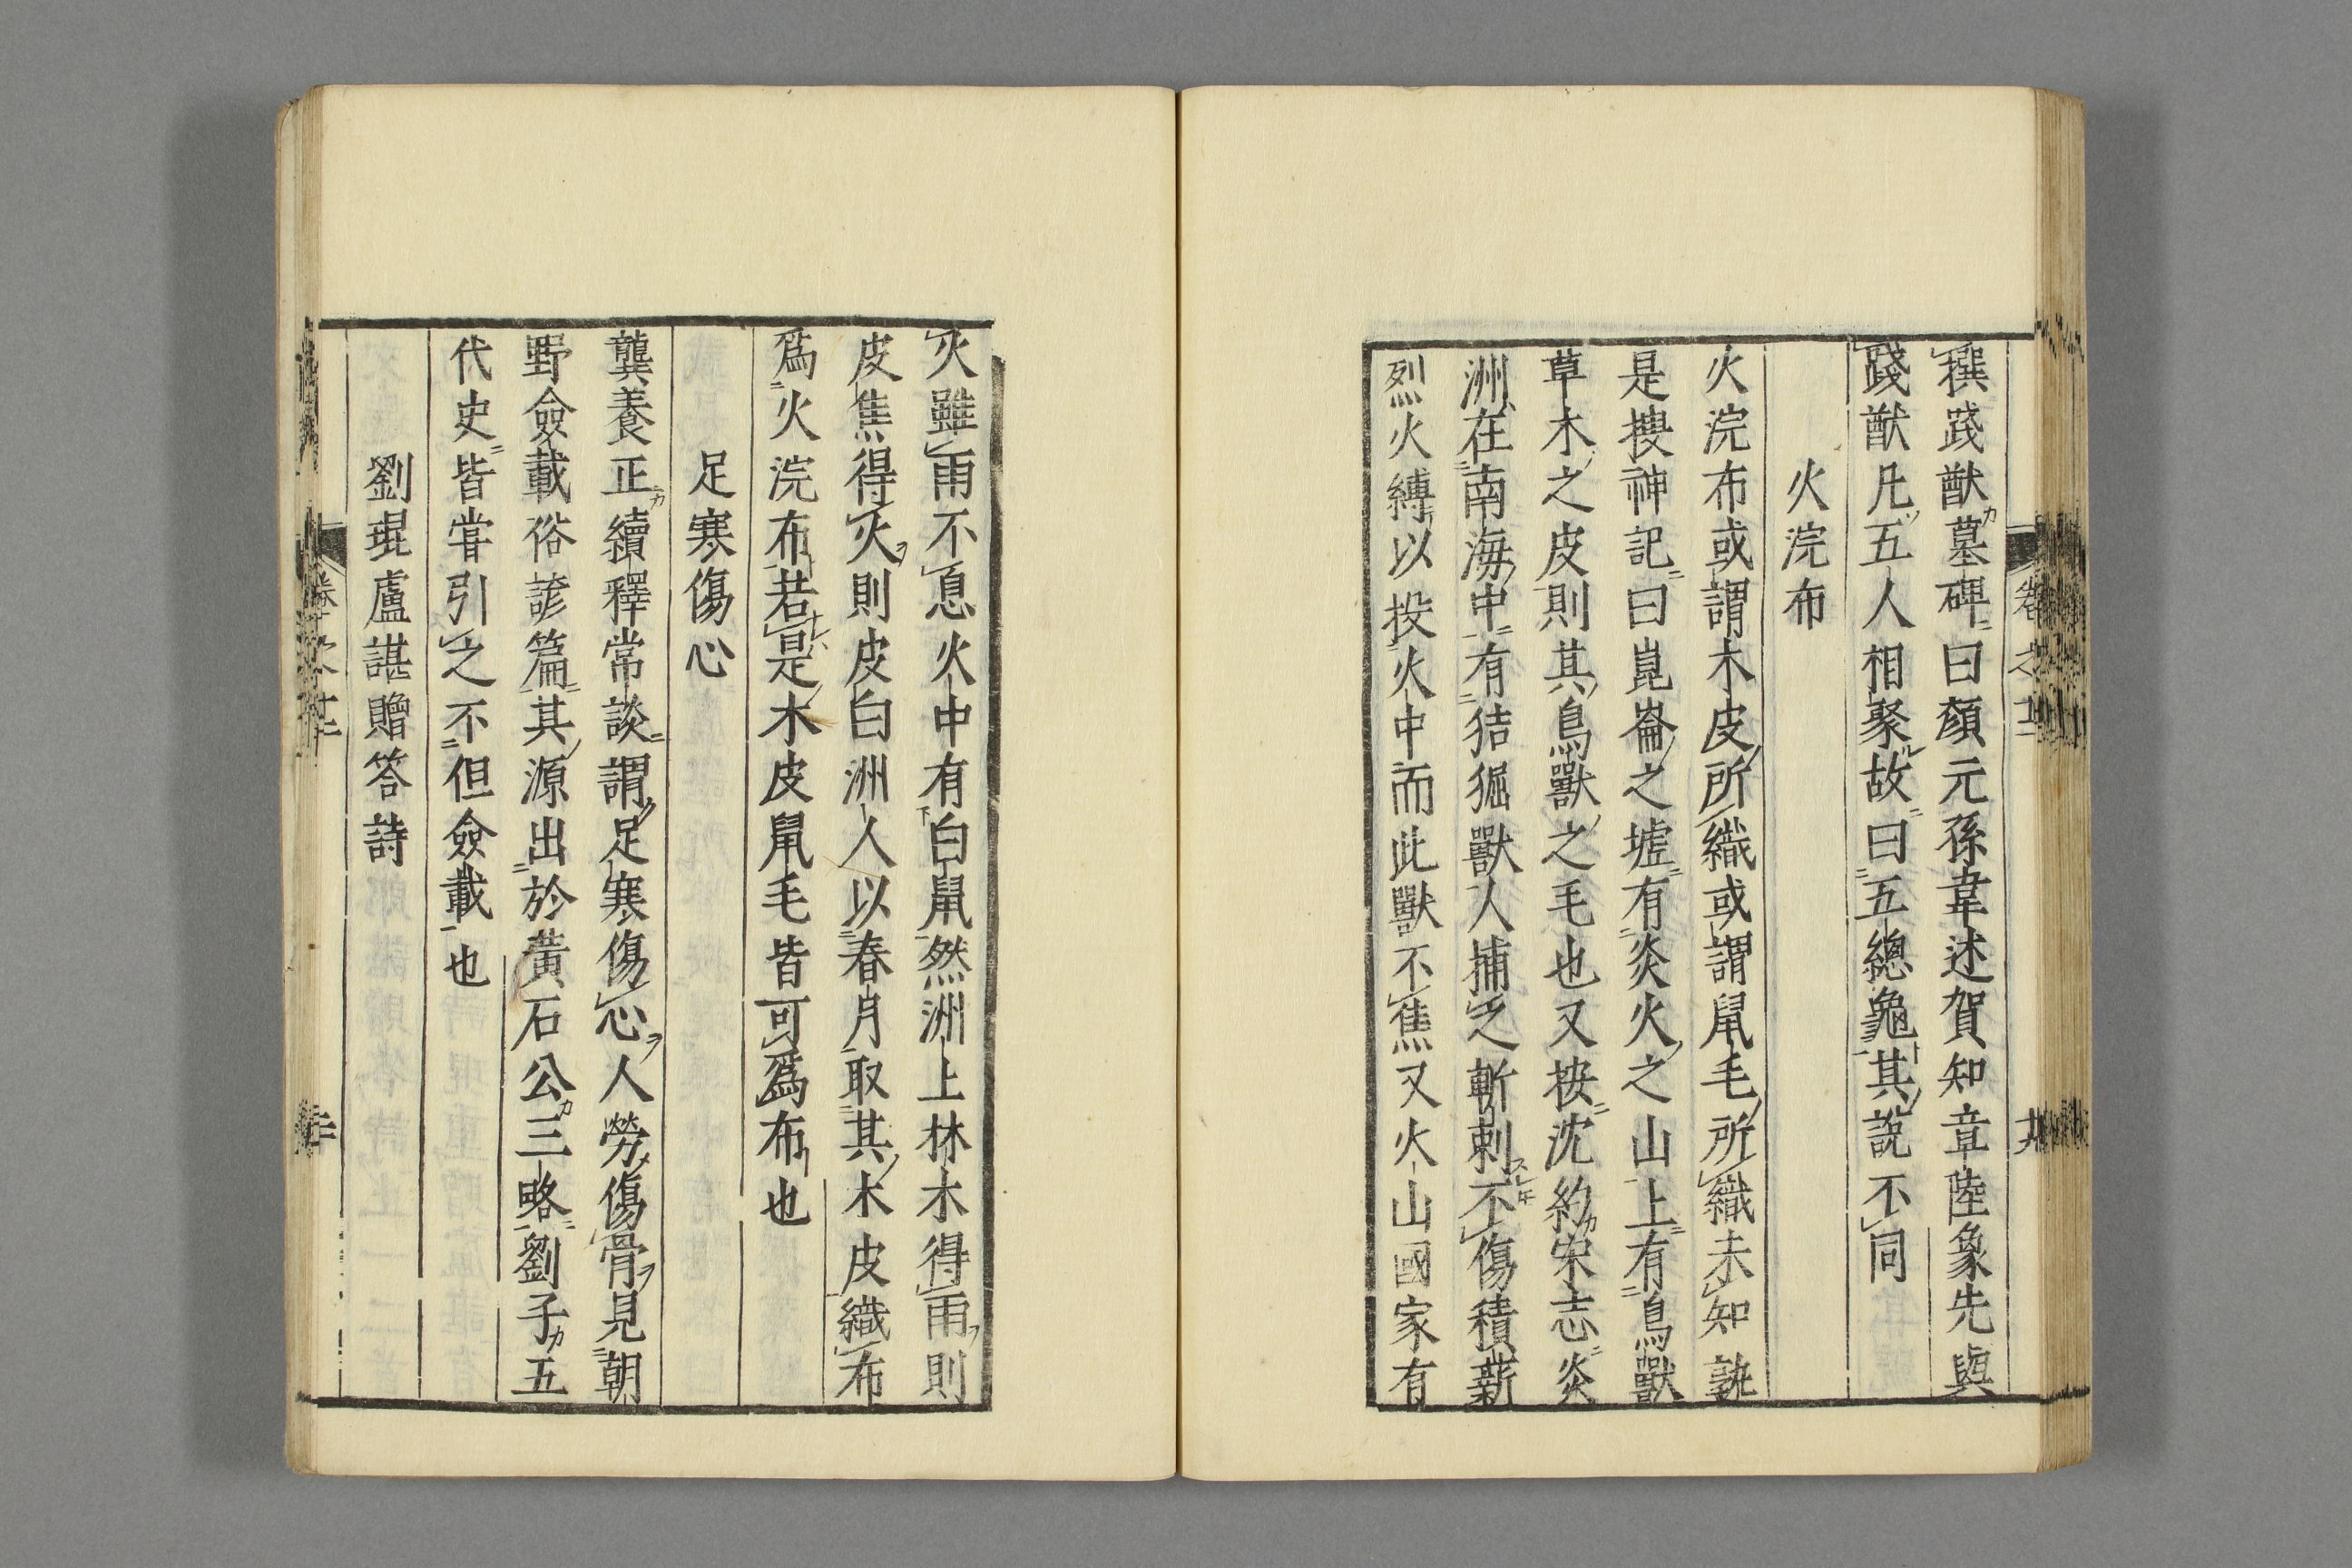 撰踐猷墓碑曰顏元孫韋述賀知章陸象先與
踐猷凡五人相聚故曰五總龜其說不同
火浣布
火浣布或謂木皮所織或謂鼠毛所織未知孰
是搜神記曰崑崙之墟有炎火之山山上有鳥獸
草木之皮則其鳥獸之毛也又按沈約宋志炎
洲在南海中有狤𤟎獸人捕之斬刺不傷積薪
烈火縛以投火中而此獸不焦又火山國家有
火雖雨不息火中有白鼠然洲上林木得雨則
皮焦得火則皮白洲人以春月取其木皮織布
爲火浣布若是木皮鼠毛皆可爲布也
足寒傷心
龔養正續釋常談謂足寒傷心人勞傷骨見朝
野僉載俗諺篇其源出於黃石公三略劉子五
代史皆嘗引之不但僉載也
劉琨盧諶贈答詩